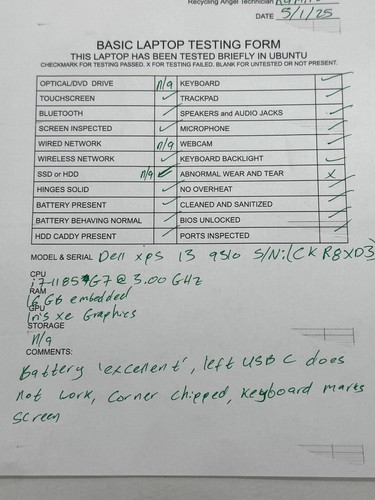 Recycling Angel Technician
DATE 5/1/25
BASIC LAPTOP TESTING FORM
THIS LAPTOP HAS BEEN TESTED BRIEFLY IN UBUNTU
CHECKMARK FOR TESTING PASSED. X FOR TESTING FAILED. BLANK FOR UNTESTED OR NOT PRESENT.
OPTICAL/DVD DRIVE n/a KEYBOARD ✓
TOUCHSCREEN ✓ TRACKPAD ✓
BLUETOOTH ✓ SPEAKERS and AUDIO JACKS ✓
SCREEN INSPECTED ✓ MICROPHONE ✓
WIRED NETWORK n/a WEBCAM ✓
WIRELESS NETWORK ✓ KEYBOARD BACKLIGHT ✓
SSD or HDD n/a ✓ ABNORMAL WEAR AND TEAR X
HINGES SOLID ✓ NO OVERHEAT ✓
BATTERY PRESENT ✓ CLEANED AND SANITIZED ✓
BATTERY BEHAVING NORMAL ✓ BIOS UNLOCKED ✓
HDD CADDY PRESENT ✓ PORTS INSPECTED ✓
MODEL & SERIAL Dell xps 13 9310 S/N:
CPU
i7-1185G7 @ 3.00 GHz
RAM
16 GB embedded
GPU
Iris xe Graphics
STORAGE
n/a
COMMENTS:
Battery 'excellent', left USB C does
not work, corner chipped, keyboard marks
screen